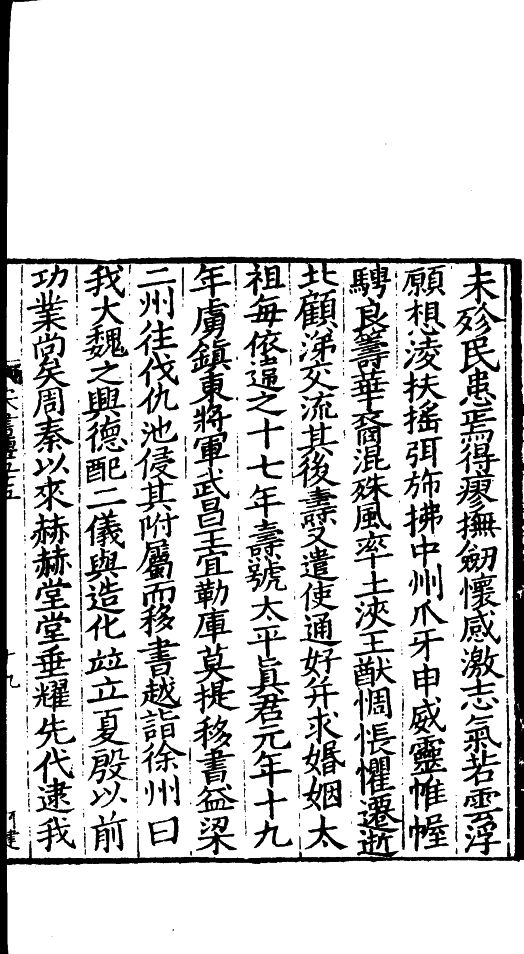 未殄民患焉得瘳撫劒懷感激志氣若雲浮
願想淩扶搖弭斾拂中州爪牙申威靈帷幄
騁良籌華裔混殊風率土浹王猷惆悵懼遷逝
北顧涕交流其後燾又遣使通好幷求婚姻太
祖每依違之十七年燾號太平眞君元年十九
年虜鎮東將軍武昌王宜勒庫莫提移書益梁
二州往伐仇池侵其附屬而移書越詣徐州曰
我大魏之興德配二儀與造化竝立夏殷以前
功業尚矣周秦以來赫赫堂堂垂耀先代逮我
十九